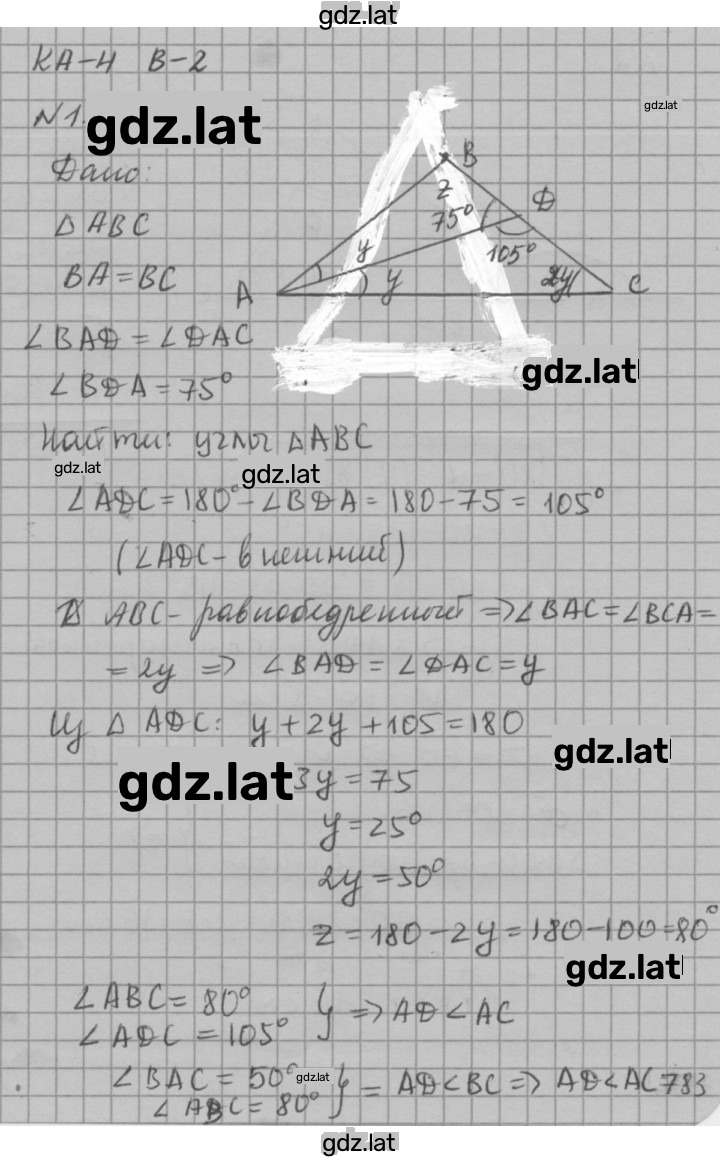 gdz.lat
КА-4 В-2
№1.
gdz.lat
gdz.lat
Дано:
△ABC
BA=BC
∠BAD=∠DAC
∠BDA=75°
B
z
75°
D
105°
y
y
2y
A
C
gdz.lat
Найти: углы △ABC
gdz.lat
gdz.lat
∠ADC=180°-∠BDA=180-75=105°
(∠ADC-внешний)
ABC-равнобедренный ⇒∠BAC=∠BCA=
=2y ⇒ ∠BAD=∠DAC=y
Из △ADC: y+2y+105=180
gdz.lat
gdz.lat
3y=75
y=25°
2y=50°
z=180-2y=180-100=80°
gdz.lat
∠ABC=80°
∠ADC=105° } ⇒AD<AC
∠BAC=50°
gdz.lat
∠ABC=80° } = AD<BC⇒ AD<AC
gdz.lat